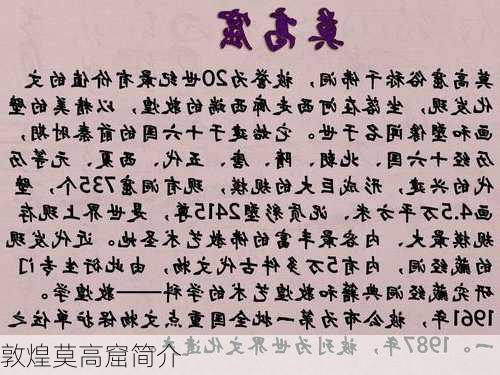 莫高窟
莫高窟俗称千佛洞，被誉为20世纪最有价值的文
化发现，坐落在河西走廊西端的敦煌，以精美的壁
画和塑像闻名于世。它始建于十六国的前秦时期，
历经十六国、北朝、隋、唐、五代、西夏、元等历
代的兴建，形成巨大的规模，现有洞窟735个，壁
画4.5万平方米、泥质彩塑2415尊，是世界上现存
规模最大、内容最丰富的佛教艺术圣地。近代发现
的藏经洞，内有5万多件古代文物，由此衍生专门
研究藏经洞典籍和敦煌艺术的学科——敦煌学。
1961年，被公布为第一批全国重点文物保护单位之
一。1987年，被列为世界文化遗产
敦煌莫高窟简介